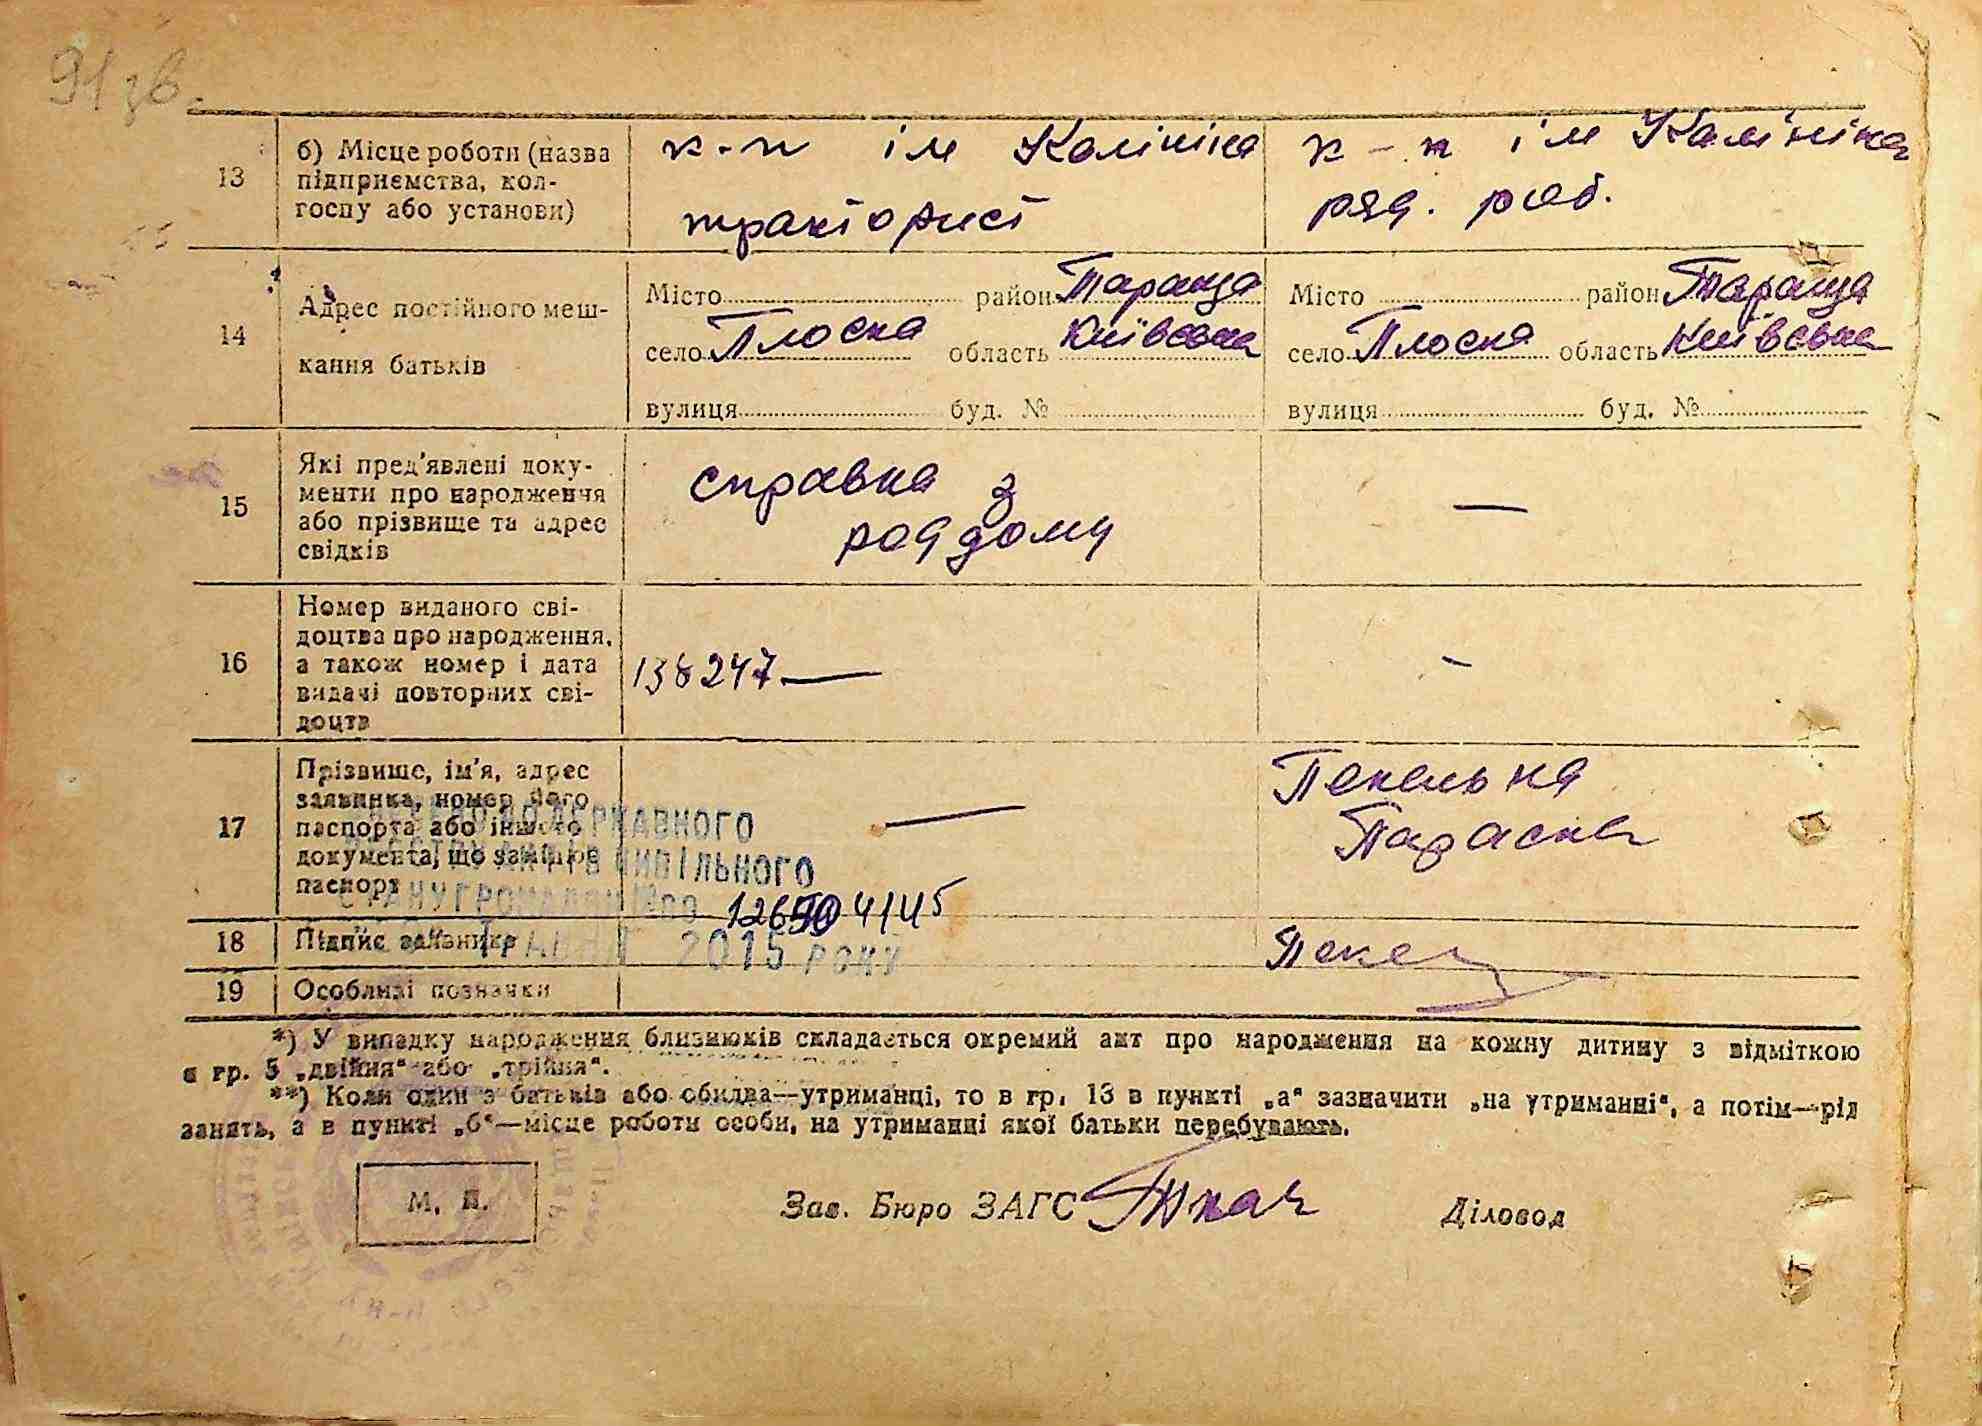 91 зв.
13
б) Місце роботи (назва
підприємства, кол-
госпу або установи)
к-п ім Калініна
тракторист
к-п ім Калініна
ряд. роб.
14
Адрес постійного меш-
кання батьків
Місто район Тараща
село Плоска область Київська
вулиця буд. №
Місто район Тараща
село Плоска область Київська
вулиця буд. №
15
Які пред'явлені доку-
менти про народження
або прізвище та адрес
свідків
справка з
роддому
—
16
Номер виданого сві-
доцтва про народження,
а також номер і дата
видачі повторних сві-
доцтв
138247—
–
17
Прізвище, ім'я, адрес
заявника, номер його
паспорта або іншого
документа, що замінює
паспорт
—
Пекельна
Параска
ДЕРЖАВНОГО
АКТІВ ЦИВІЛЬНОГО
СТАНУ ГРОМАДЯН
ТРАВНЯ 2015 РОКУ
18
Підпис заявника
Пекел
19
Особливі позначки
*) У випадку народження близнюків складається окремий акт про народження на кожну дитину з відміткою
в гр. 5 „двійня“ або „трійня“.
**) Коли один з батьків або обидва—утриманці, то в гр. 13 в пункті „а“ зазначити „на утриманні“, а потім—рід
занять, а в пункті „б“—місце роботи особи, на утриманці якої батьки перебувають.
М. П.
Зав. Бюро ЗАГС Ткач
Діловод